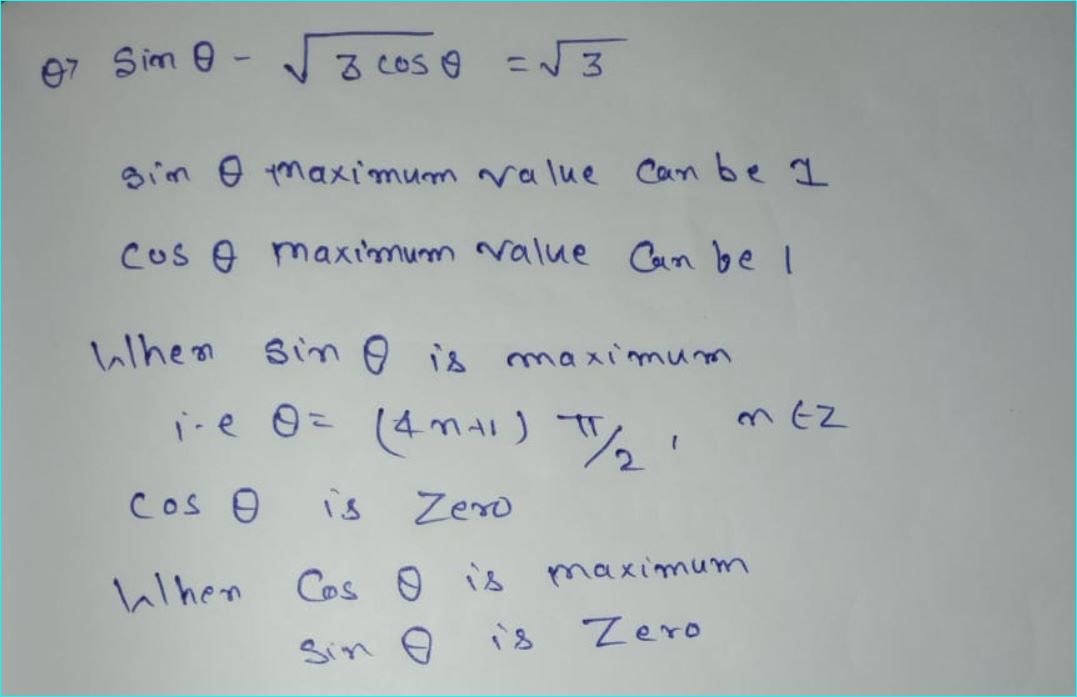 Q> Sin θ - √3 cos θ = √3
sin θ maximum value can be 1
cos θ maximum value Can be 1
When sin θ is maximum
i.e θ = (4n+1) π/2 , n ∈ Z
cos θ is Zero
When Cos θ is maximum
sin θ is Zero